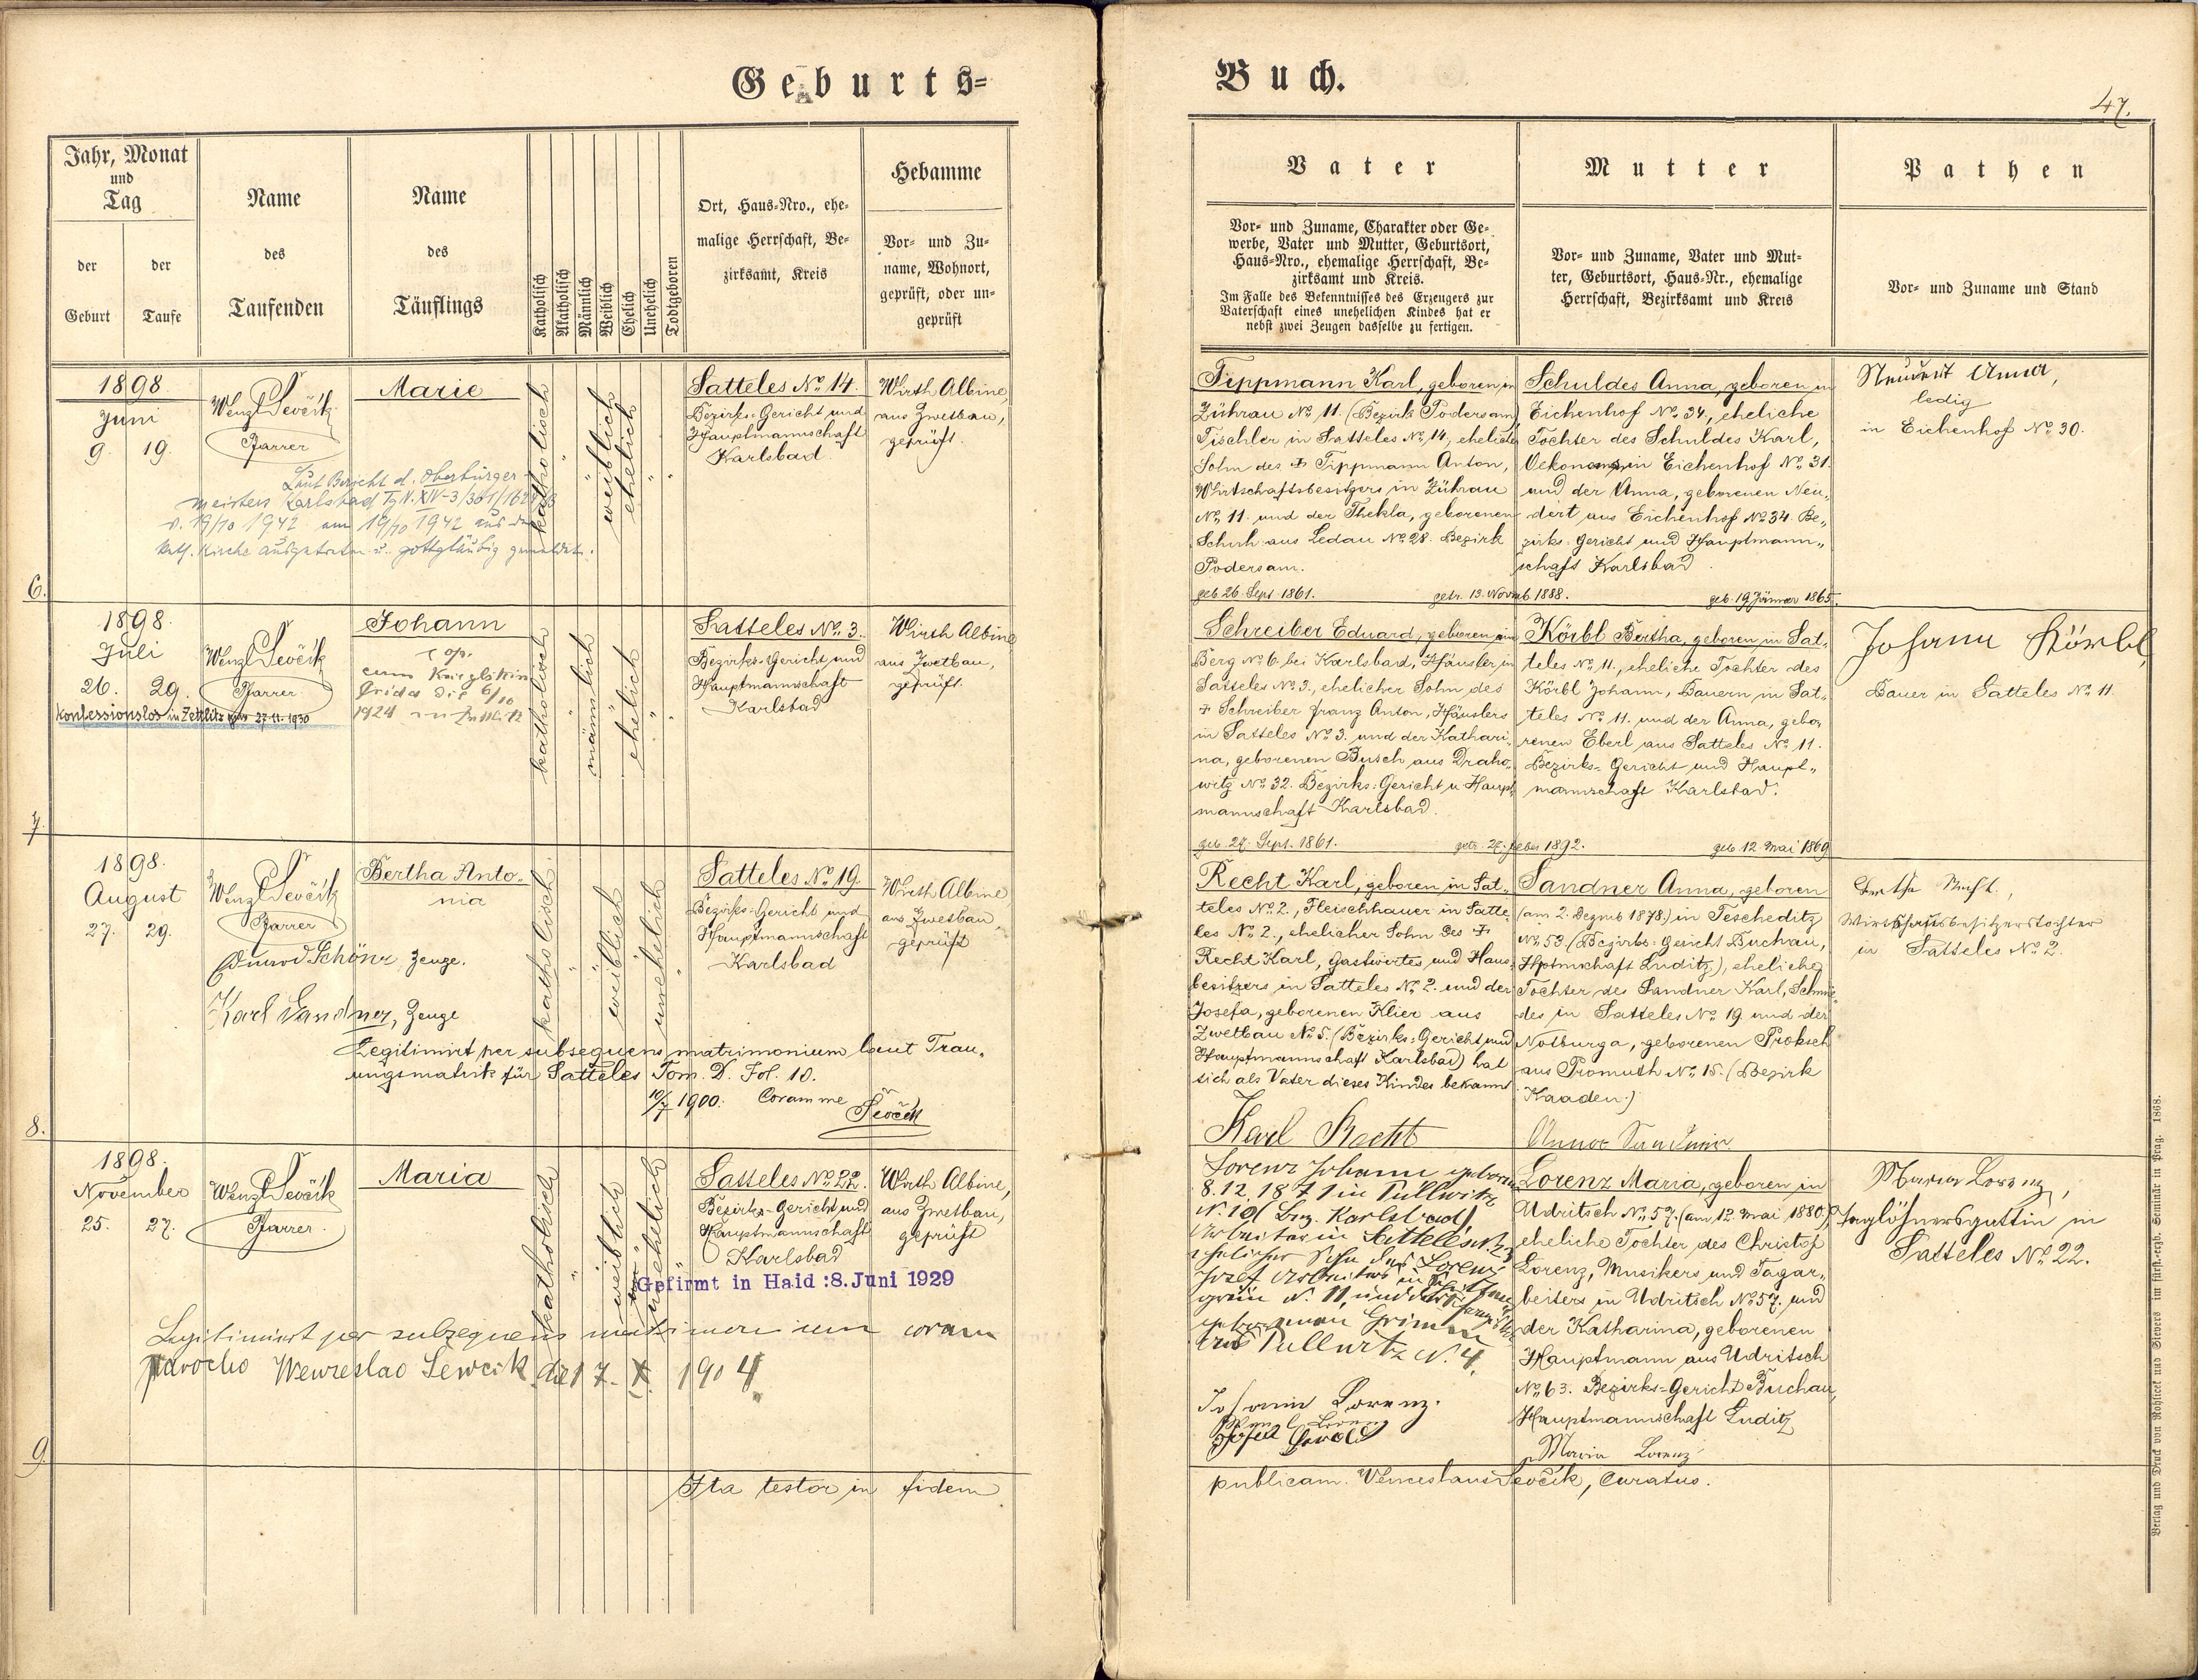 Geburts=
Buch.
47.
Jahr, Monat
und
Tag
der
Geburt
der
Taufe
Name
des
Taufenden
Name
des
Täuflings
Katholisch
Akatholisch
Männlich
Weiblich
Ehelich
Unehelich
Todtgeboren
Ort, Haus=Nro., ehe=
malige Herrschaft, Be=
zirksamt, Kreis
Hebamme
Vor= und Zu=
name, Wohnort,
geprüft, oder un=
geprüft
Vater
Vor= und Zuname, Charakter oder Ge=
werbe, Vater und Mutter, Geburtsort,
Haus=Nro., ehemalige Herrschaft, Be=
zirksamt und Kreis.
Im Falle des Bekenntnisses des Erzeugers zur
Vaterschaft eines unehelichen Kindes hat er
nebst zwei Zeugen dasselbe zu fertigen.
Mutter
Vor= und Zuname, Vater und Mut=
ter, Geburtsort, Haus=Nr., ehemalige
Herrschaft, Bezirksamt und Kreis
Pathen
Vor= und Zuname und Stand
6.
1898
Juni
9. 19.
Wenzl Ševčík
Pfarrer
Marie
Laut Bericht d. Oberbürger=
meisters Karlsbad
v. 19/10 1942 am 19/10 1942 aus der
kath. Kirche ausgetreten u. gottgläubig gemeldet.
katholisch
weiblich
ehelich
Satteles No. 14.
Bezirks=Gericht und
Hauptmannschaft
Karlsbad
Wirth Albine,
aus Zwetbau,
geprüft.
Tippmann Karl, geboren in
Zührau No. 11. (Bezirk Podersam)
Tischler in Satteles No. 14, ehelicher
Sohn des † Tippmann Anton,
Wirtschaftsbesitzers in Zührau
No. 11. und der Thekla, geborenen
Schuh aus Ledau No. 28. Bezirk
Podersam.
geb. 26. Sept. 1861. getr. 13. Novemb. 1888. geb. 19. Jänner 1865.
Schuldes Anna, geboren in
Eichenhof No. 34., eheliche
Tochter des Schuldes Karl,
Oekonoms in Eichenhof No. 31.
und der Anna, geborenen Neu„
dert aus Eichenhof No. 34. Be„
zirks=Gericht und Hauptmann„
schaft Karlsbad.
Neudert Anna,
ledig
in Eichenhof No. 30.
7.
1898.
Juli
26. 29.
konfessionslos in Zettlitz 27.11.1930
Wenzl Ševčík
Pfarrer
Johann
cop.
cum
Frida die 6/10
1924
katholisch
männlich
ehelich
Satteles No. 3.
Bezirks=Gericht und
Hauptmannschaft
Karlsbad
Wirth Albine
aus Zwetbau,
geprüft.
Schreiber Eduard, geboren in
Berg No. 6. bei Karlsbad, Häusler in
Satteles No. 3., ehelicher Sohn des
† Schreiber Franz Anton, Häuslers
in Satteles No. 3. und der Kathari„
na, geborenen Busch aus Draho„
witz No. 32. Bezirks=Gericht u. Haupt„
mannschaft Karlsbad.
geb. 27. Sept. 1861. getr. 27. Feber 1892. geb. 12. Mai 1869
Körbl Bertha, geboren in Sat„
teles No. 11., eheliche Tochter des
Körbl Johann, Bauern in Sat„
teles No. 11. und der Anna, gebo„
renen Eberl aus Satteles No. 11.
Bezirks=Gericht und Haupt„
mannschaft Karlsbad.
Johann Körbl,
Bauer in Satteles No. 11.
8.
1898.
August
27. 29.
Wenzl Ševčík
Pfarrer
Schöner, Zeuge.
Karl Sandner, Zeuge
Bertha Anto„
nia
katholisch
weiblich
unehelich
Satteles No. 19.
Bezirks=Gericht und
Hauptmannschaft
Karlsbad
Wirth Albine,
aus Zwetbau,
geprüft
Legitimirt per subsequens matrimonium laut Trau„
ungsmatrik für Satteles Tom. D. Fol. 10.
10/7 1900. Coram me Ševčík
Recht Karl, geboren in Sat„
teles No. 2., Fleischhauer in Satte„
les No. 2., ehelicher Sohn des †
Recht Karl, Gastwirtes und Haus„
besitzers in Satteles No. 2. und der
Josefa, geborenen Klier aus
Zwetbau No. 5. (Bezirks=Gericht und
Hauptmannschaft Karlsbad) hat
sich als Vater dieses Kindes bekannt
Karl Recht
Sandner Anna, geboren
(am 2. Dezmb 1878.) in Tescheditz
No. 53 (Bezirks=Gericht Buchau,
Hptmschaft Luditz), eheliche
Tochter des Sandner Karl, Schmie„
des in Satteles No. 19. und der
Notburga, geborenen Proksch
aus Promuth No. 15. (Bezirk
Kaaden.)
Anna Sandner
Bertha Recht,
Wirtschaftsbesitzerstochter
in Satteles No. 2.
9.
1898.
November
25. 27.
Wenzl Ševčík
Pfarrer
Maria
katholisch
weiblich
unehelich
Satteles No. 22.
Bezirks=Gericht und
Hauptmannschaft
Karlsbad
Wirth Albine,
aus Zwetbau,
geprüft
Gefirmt in Haid :8. Juni 1929
Legitimiert per subsequens matrimonium coram
parocho Wenzeslao Sewcik die 17. X. 1904.
Lorenz Johann geboren
8.12.1871 in Tüllwitz
N. 10 (Bez. Karlsbad),
Arbeiter in Satteles N. 23
ehelicher Sohn des Lorenz
Josef Arbeiters in
grün N. 11 und der
geborenen Grimm
aus Tullwitz N. 4.
Johann Lorenz.
Wenzl Lorenz
Josef
Lorenz Maria, geboren in
Udritsch No. 57. (am 12. Mai 1880),
eheliche Tochter des Christof
Lorenz, Musikers und Tagar„
beiters in Udritsch No. 57. und
der Katharina, geborenen
Hauptmann aus Udritsch
No. 63. Bezirks=Gericht Buchau,
Hauptmannschaft Luditz
Maria Lorenz
Maria Lorenz,
Taglöhnersgattin in
Satteles No. 22.
Ita testor in fidem
publicam. Wenceslaus Ševčík, Curatus.
Verlag und Druck von Rohlicek und Sievers im fürst.=erzb. Seminär in Prag. 1868.